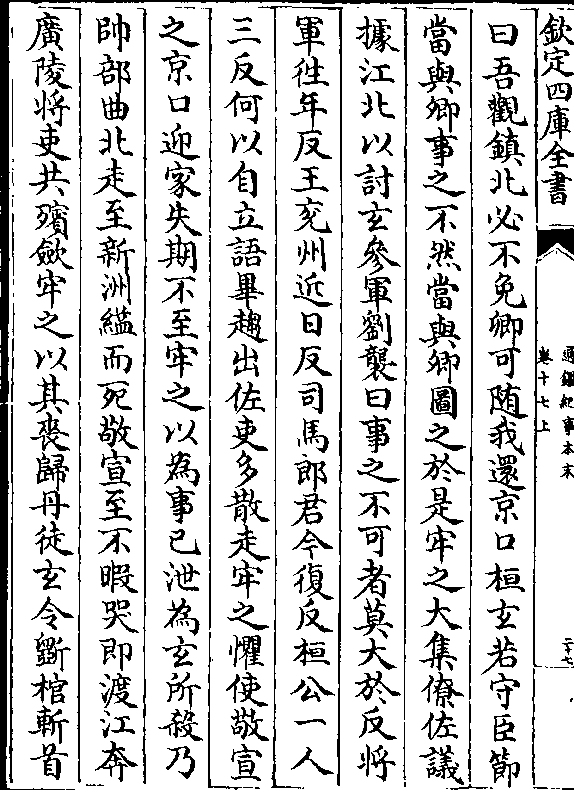 欽定四庫全書
通鑑紀事本末
卷十七上
二十七
曰吾觀鎮北必不免卿可随我還京口桓玄若守臣節
當與卿事之不然當與卿圖之於是牢之大集僚佐議
據江北以討玄參軍劉襲曰事之不可者莫大於反將
軍徃年反王兖州近日反司馬郎君今復反桓公一人
三反何以自立語畢趨出佐吏多散走牢之懼使敬宣
之京口迎家失期不至牢之以為事已泄為玄所殺乃
帥部曲北走至新洲縊而死敬宣至不暇哭即渡江奔
廣陵将吏共殯斂牢之以其喪歸丹徒玄令斵棺斬首